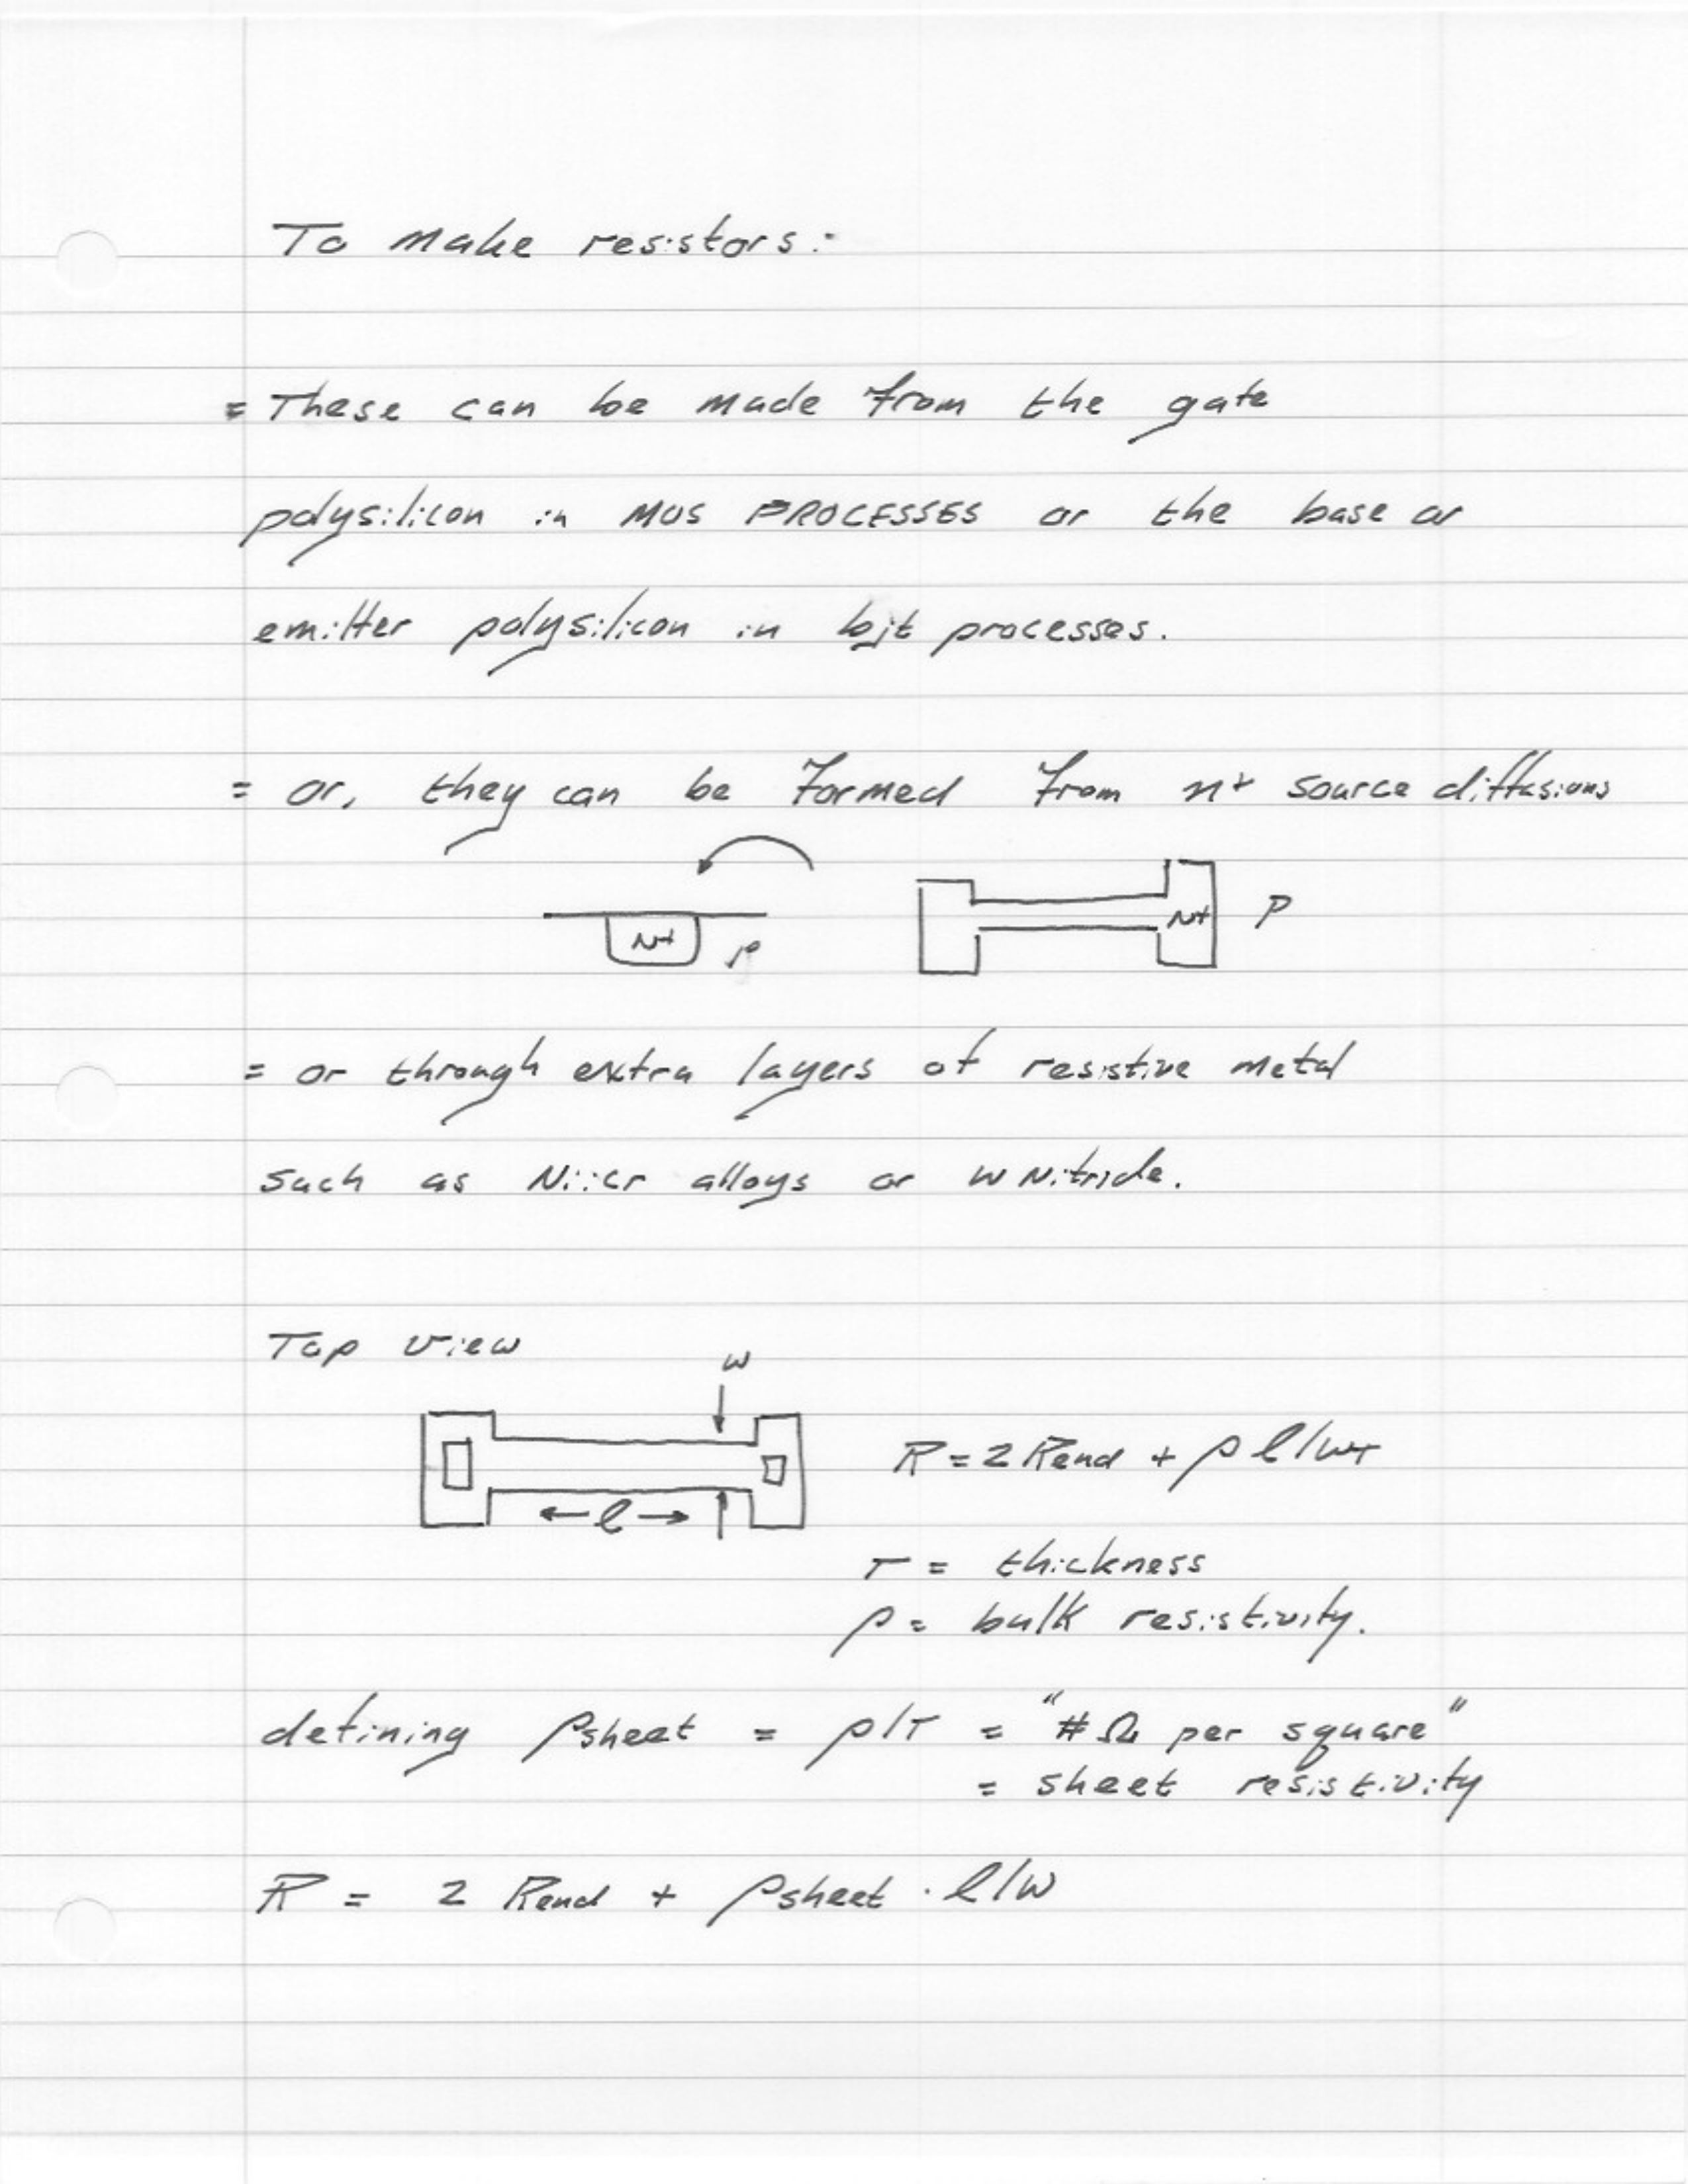 To make resistors:
= These can be made from the gate
polysilicon in MOS PROCESSES or the base or
emitter polysilicon in bjt processes.
= or, they can be formed from n+ source diffusions
N+ P N+ P
= or through extra layers of resistive metal
such as Ni:Cr alloys or W Nitride.
Top view
w
R = 2 Rend + ρ l/wT
← l →
T = thickness
ρ = bulk resistivity.
defining ρsheet = ρ/T = "# Ω per square"
= sheet resistivity
R = 2 Rend + ρsheet · l/w